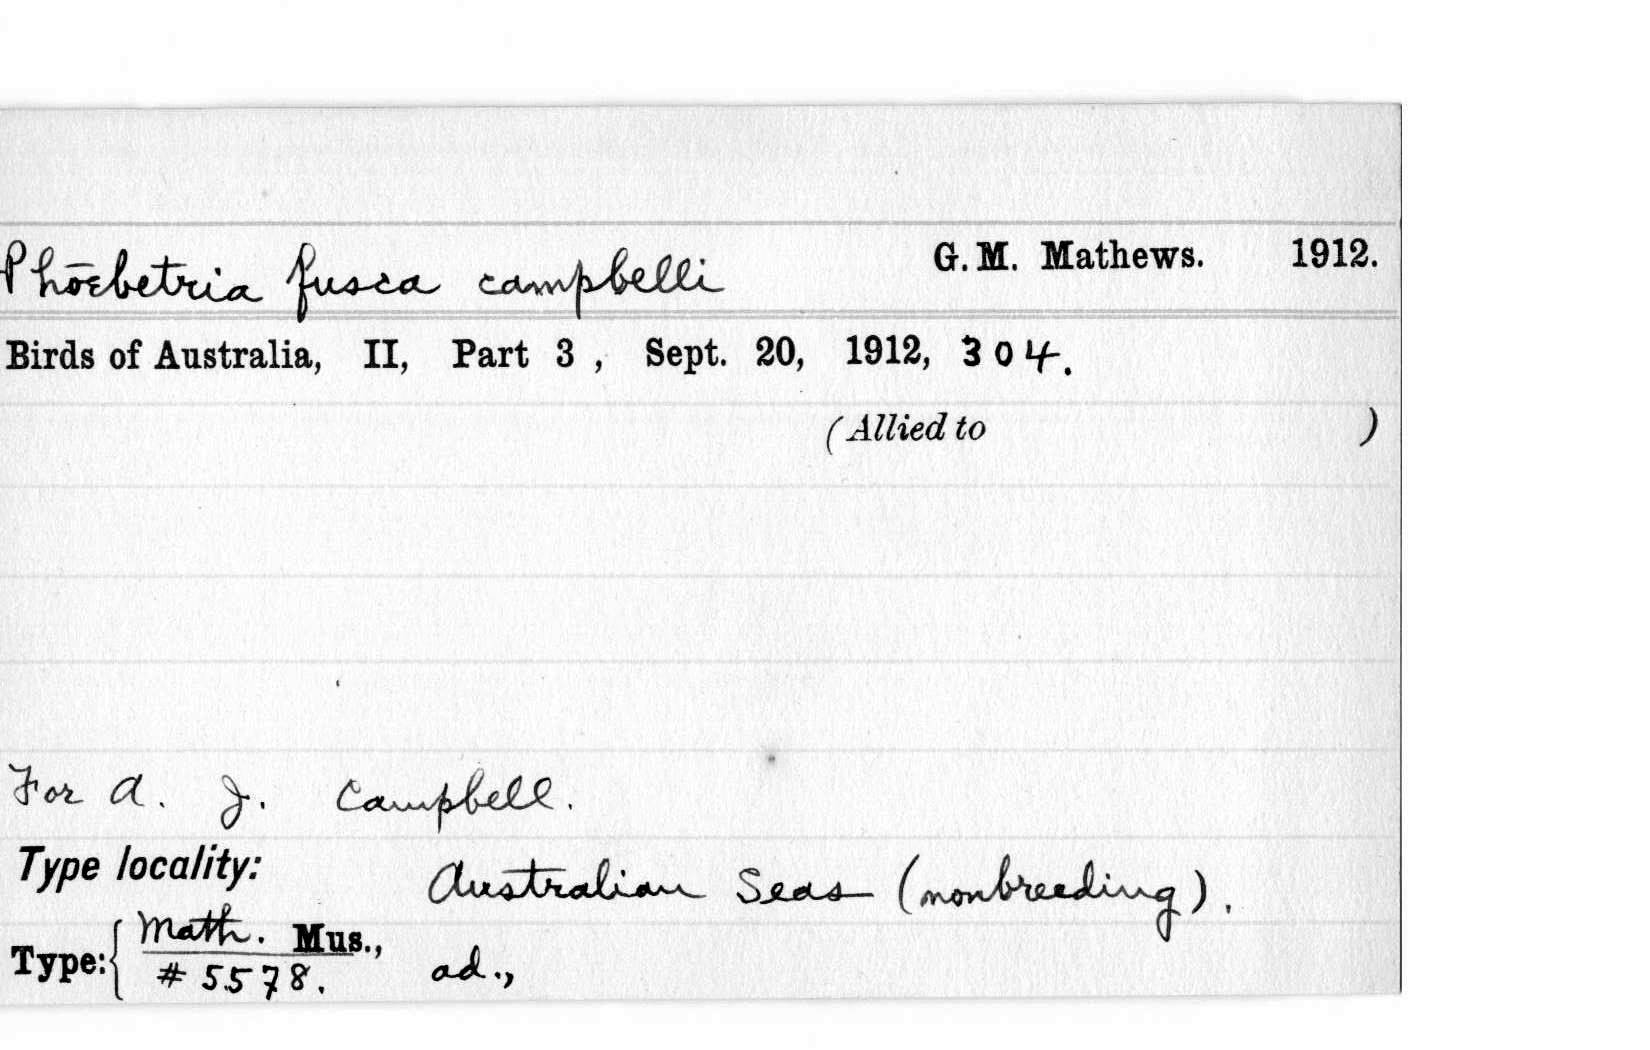 Phōebetria fusca campbelli G. M. Mathews. 1912.
Birds of Australia, II, Part 3 , Sept. 20, 1912, 304.
(Allied to )
For A. J. Campbell.
Type locality: Australian Seas (nonbreeding).
Type: { Math. Mus., ad.,
# 5578.